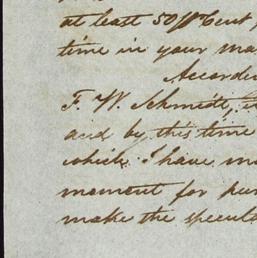 at least 50 pr Cent
time in your ma
Accordin
F. W. Schmidt, i
and by this time
which I have ma
moment for pur
make the specula